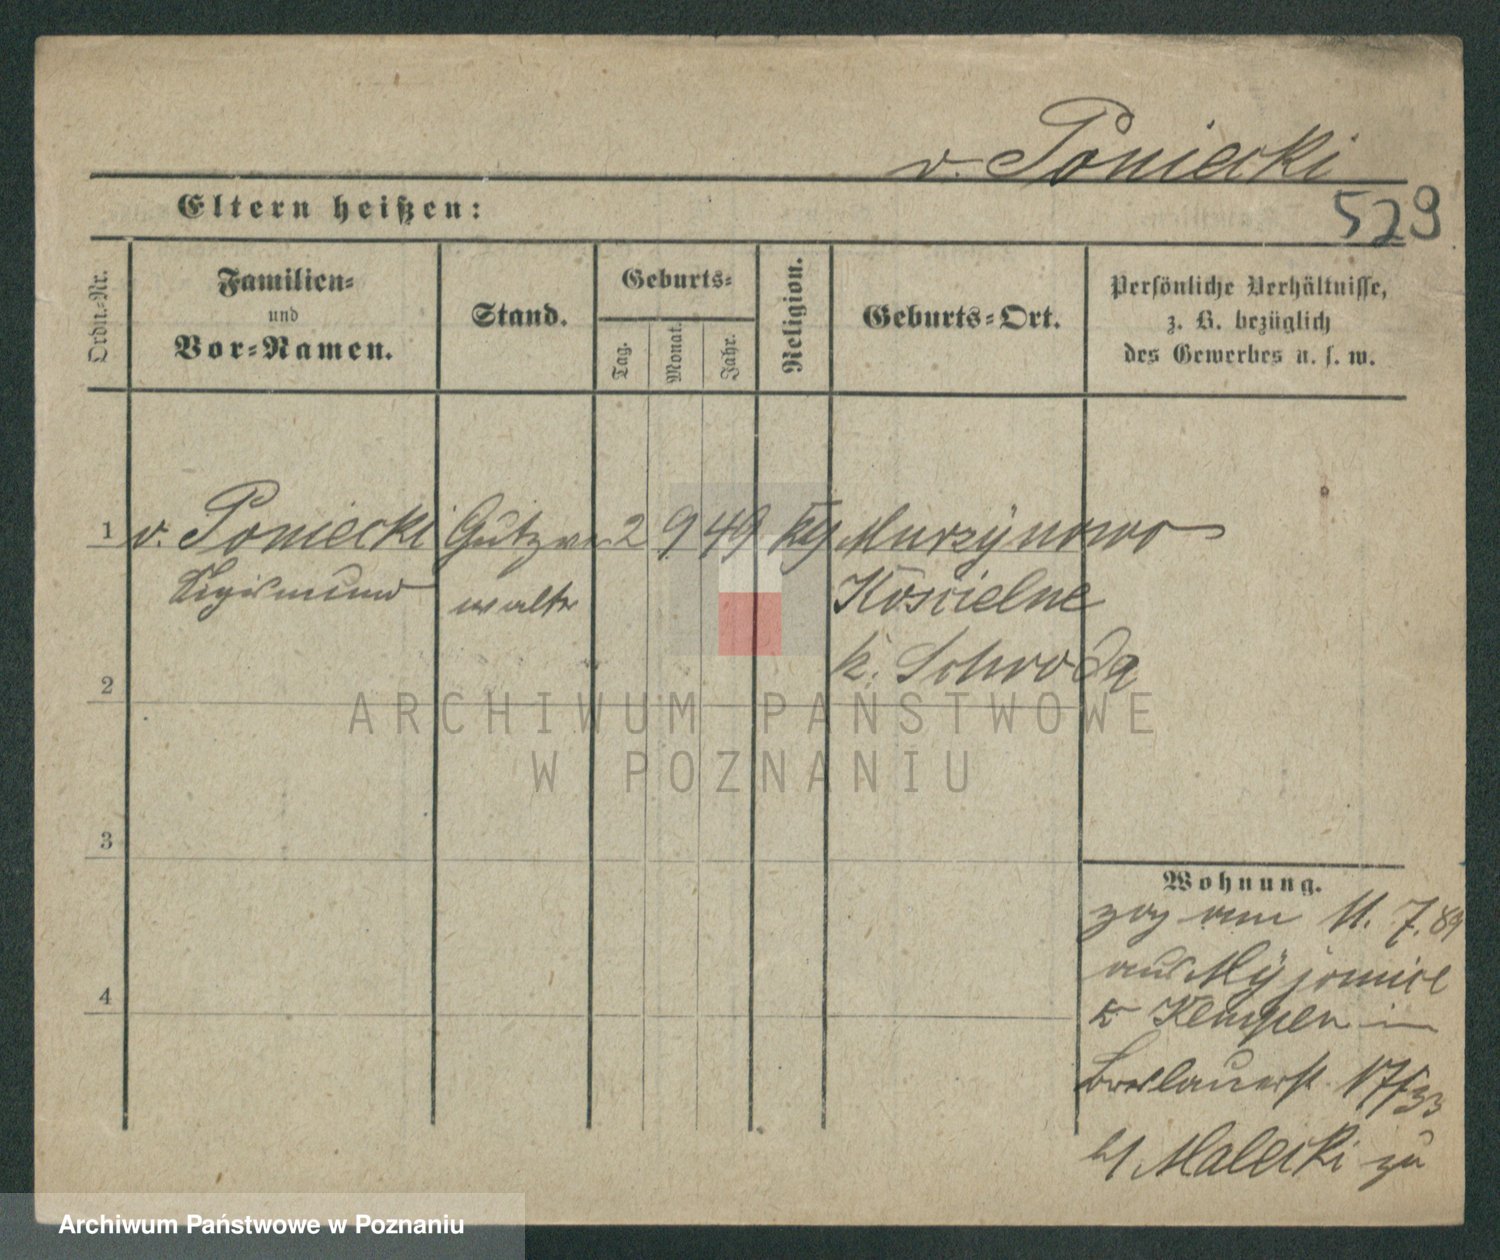 v. Poniecki
529
Eltern heißen:
Ordn.-Nr.
Familien-
und
Vor-Namen.
Stand.
Geburts-
Tag.
Monat.
Jahr.
Religion.
Geburts-Ort.
Persönliche Verhältnisse,
z. B. bezüglich
des Gewerbes u. s. w.
1 v. Poniecki Gutsver 2 9 49 kth Murzynowo
Sigismund walter Kościelne
k. Schroda
2
ARCHIWUM PAŃSTWOWE
W POZNANIU
3
4
Wohnung.
zog am 11. 7. 89
aus Myjomice
k Kempen in
Breslauerst. 17/33
b/ Malecki zu
Archiwum Państwowe w Poznaniu